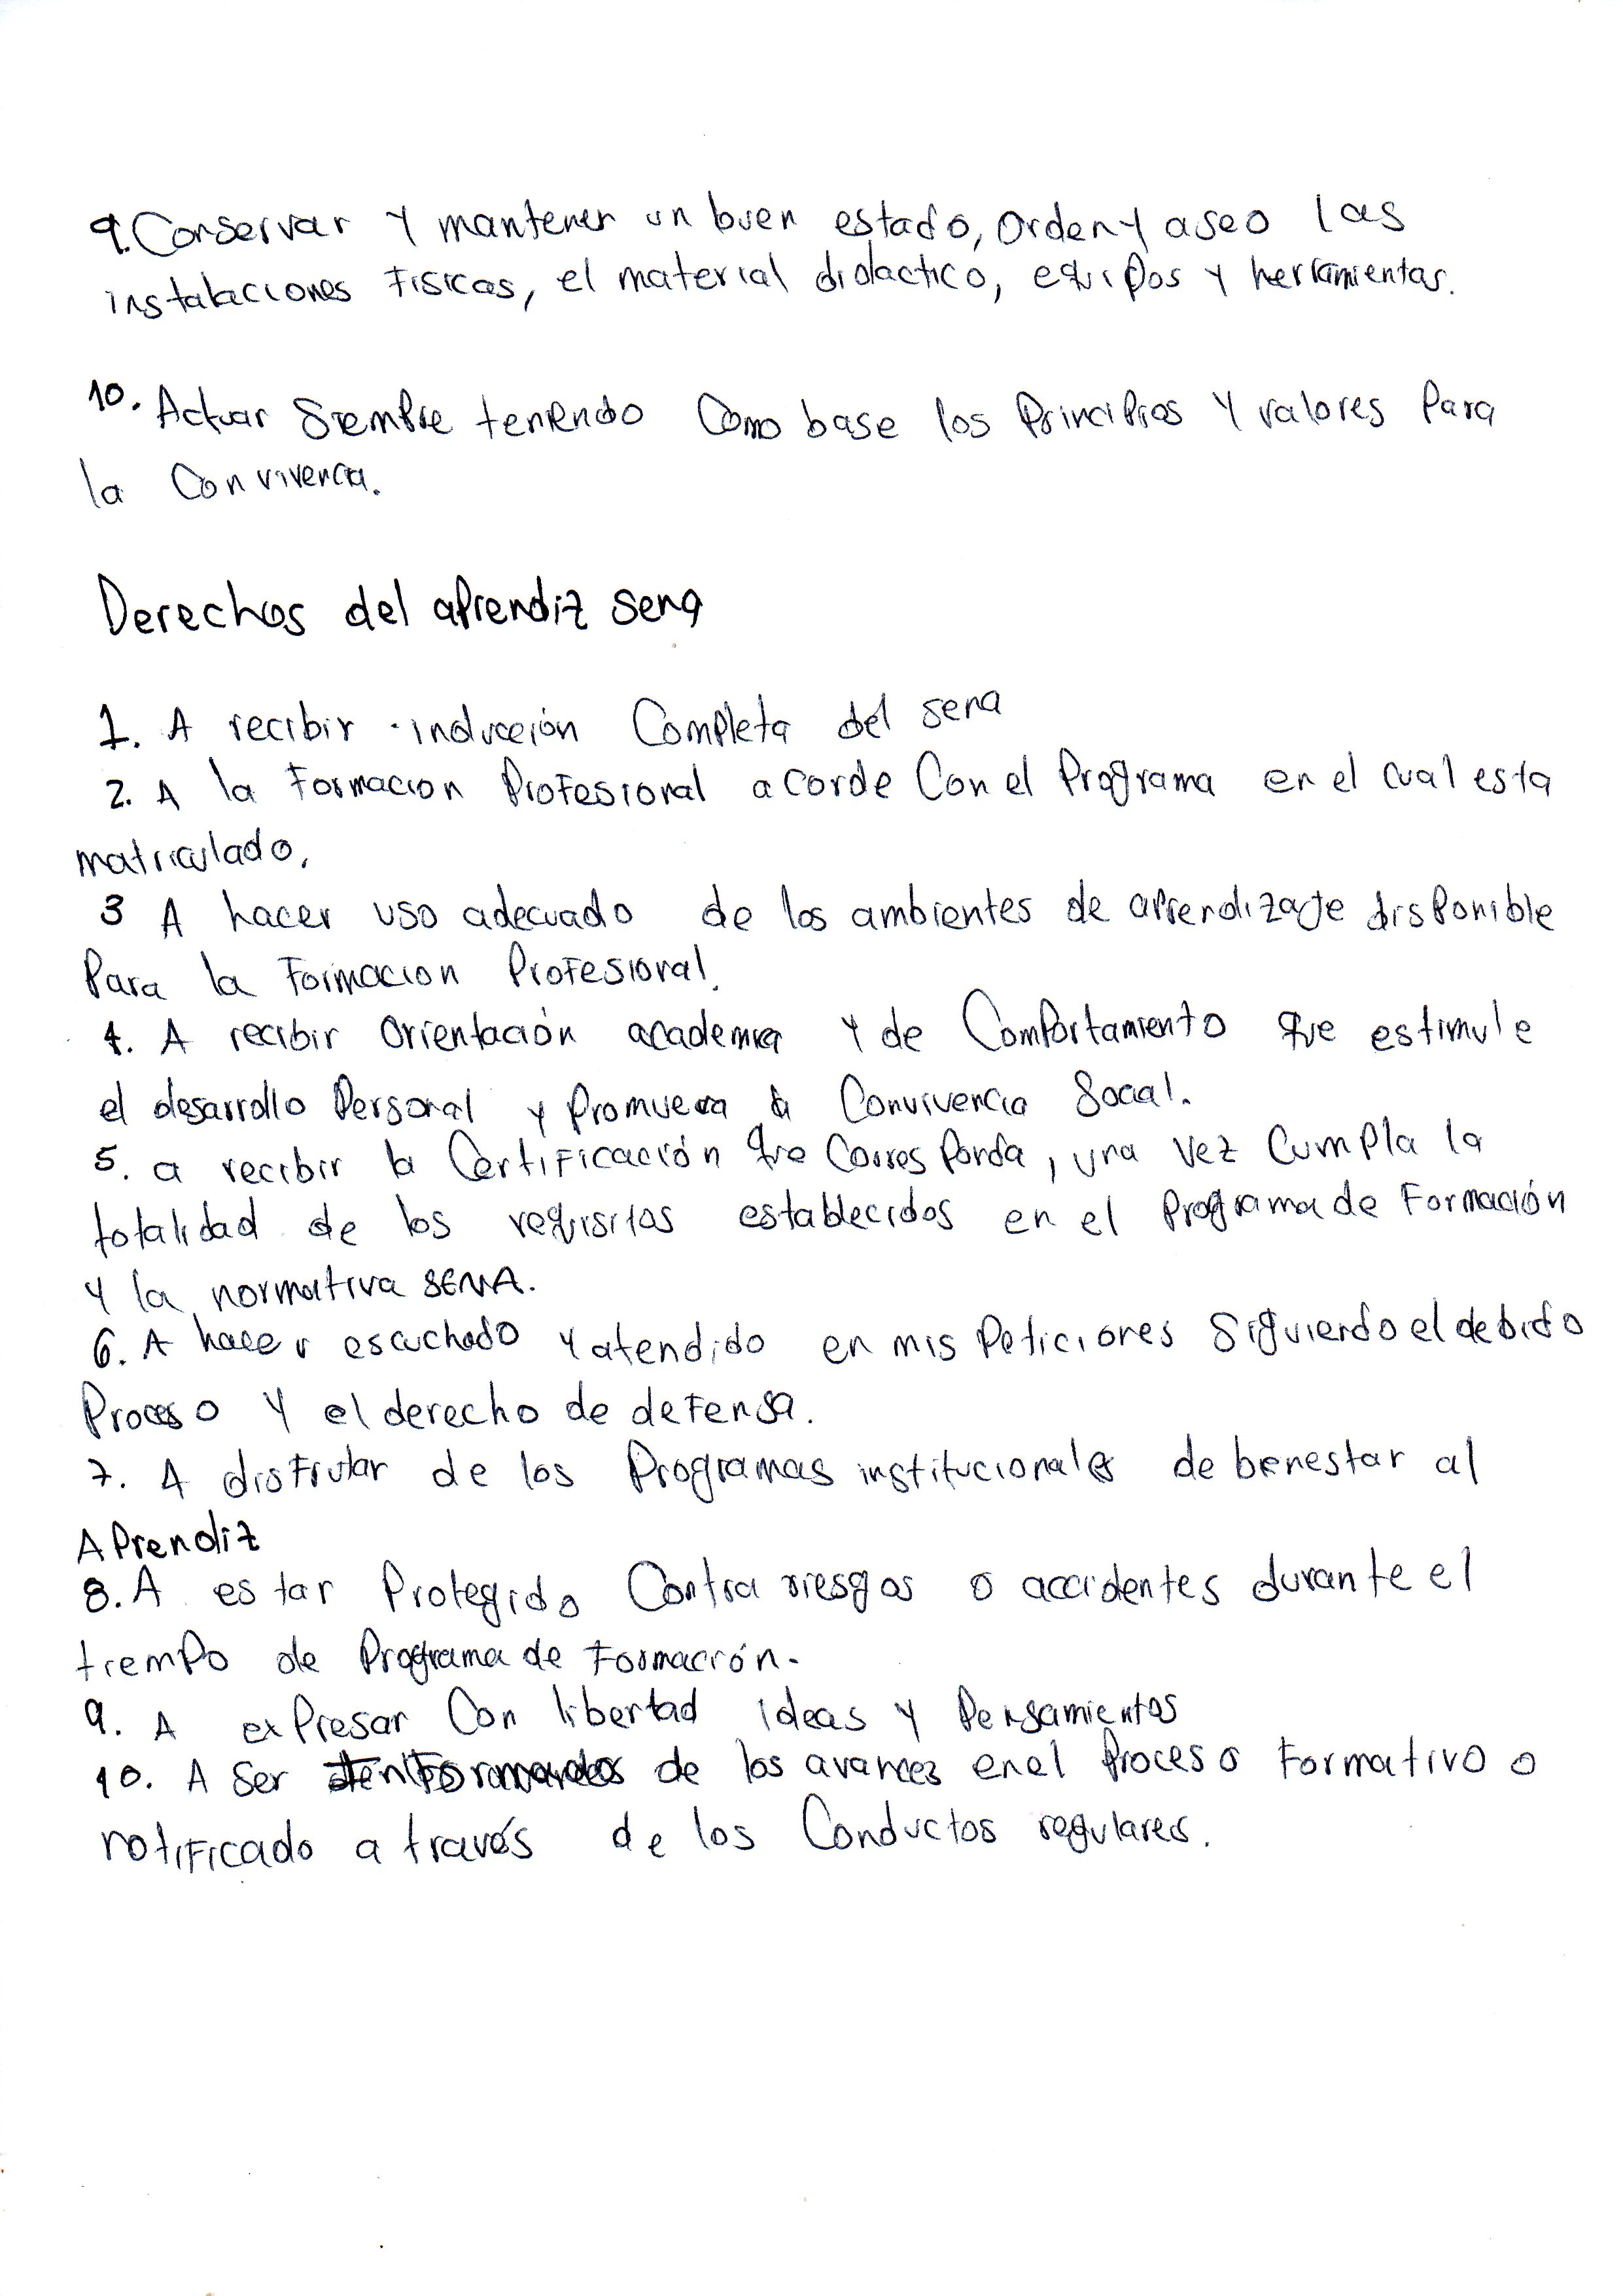 9. Conservar y mantener un buen estado, Orden y aseo las
instalaciones Fisicas, el material didactico, equipos y herramientas.
10. Actuar Siempre teniendo Como base los Principios Y valores Para
la Convivencia.
Derechos del aprendiz sena
1. A recibir inducción Completa del sena
2. A la Formacion Profesional acorde Con el Programa en el cual esta
matriculado.
3 A hacer uso adecuado de los ambientes de aprendizaje disponible
Para la Formacion Profesional.
4. A recibir Orientación academica Y de Comportamiento que estimule
el desarrollo Personal y Promueva la Convivencia Social.
5. a recibir la Certificación que Corresponda, una vez Cumpla la
totalidad de los requisitos establecidos en el Programa de Formación
y la normativa SENA.
6. A hacer escuchado y atendido en mis Peticiones Siguiendo el debido
Proceso Y el derecho de defensa.
7. A disfrutar de los Programas institucionales de benestar al
Aprendiz
8. A estar Protegido Contra riesgos o accidentes durante el
tiempo de Programa de Formación.
9. A expresar Con libertad ideas y Pensamientos
10. A Ser de los avances en el Proceso Formativo o
notificado a través de los Conductos regulares.